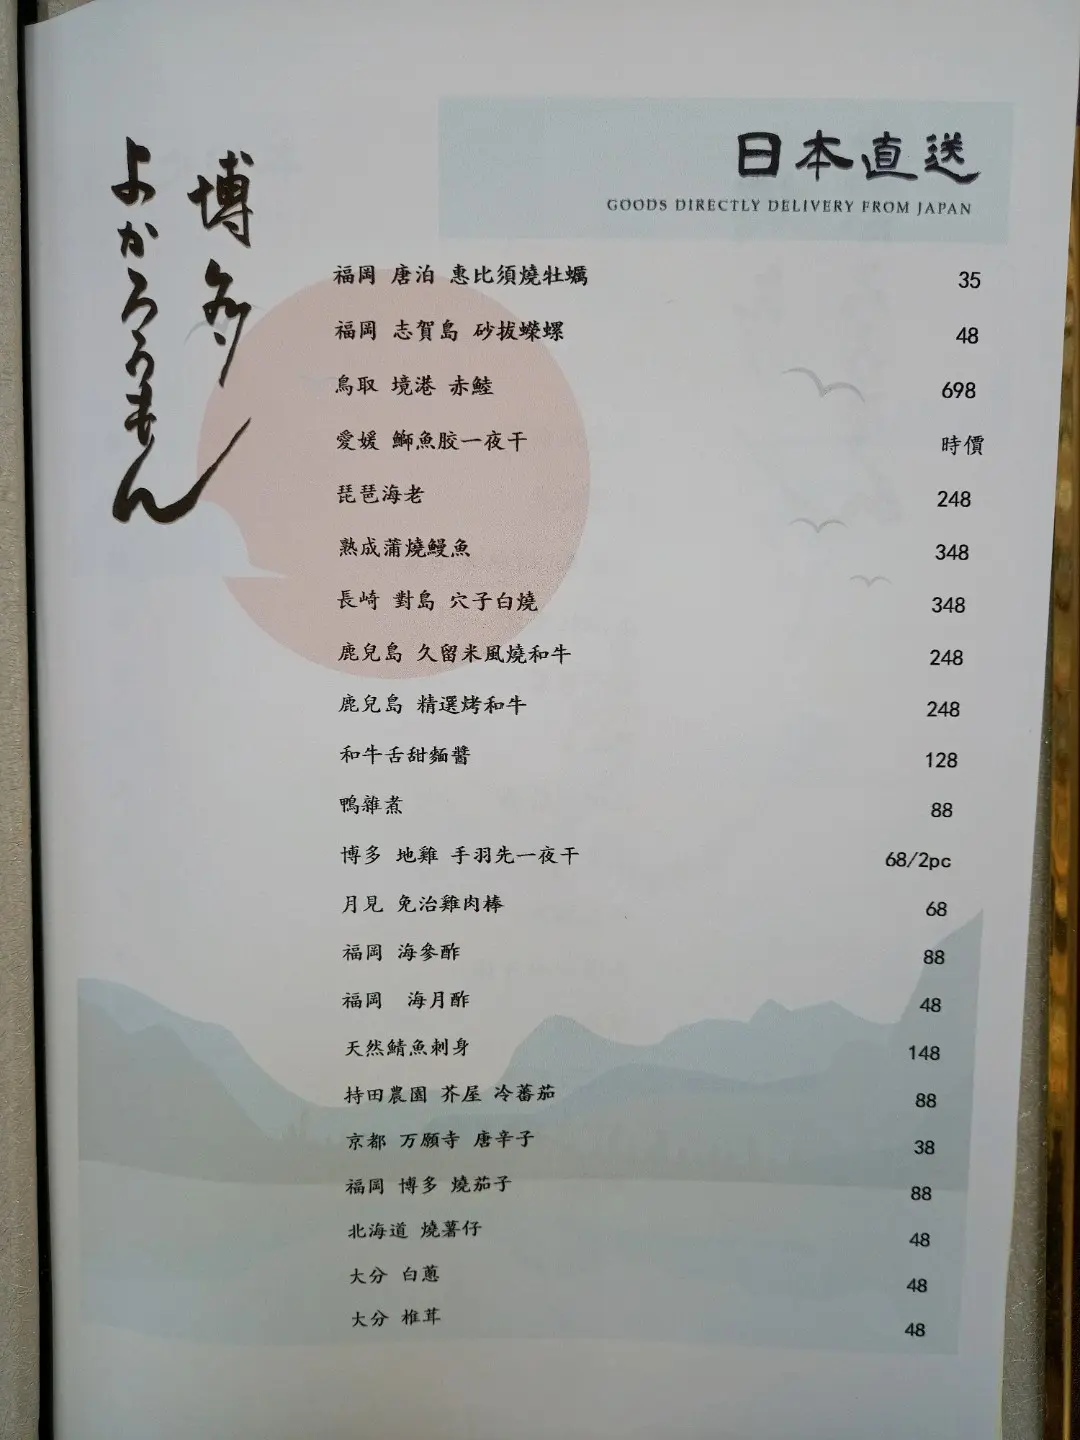 博多
よかろうもん
日本直送
GOODS DIRECTLY DELIVERY FROM JAPAN
福岡 唐泊 惠比須燒牡蠣 35
福岡 志賀島 砂拔蠑螺 48
鳥取 境港 赤鯥 698
愛媛 鰤魚胶一夜干 時價
琵琶海老 248
熟成蒲燒鰻魚 348
長崎 對島 穴子白燒 348
鹿兒島 久留米風燒和牛 248
鹿兒島 精選烤和牛 248
和牛舌甜麵醬 128
鴨雜煮 88
博多 地雞 手羽先一夜干 68/2pc
月見 免治雞肉棒 68
福岡 海參酢 88
福岡 海月酢 48
天然鯖魚刺身 148
持田農園 芥屋 冷蕃茄 88
京都 万願寺 唐辛子 38
福岡 博多 燒茄子 88
北海道 燒薯仔 48
大分 白蔥 48
大分 椎茸 48